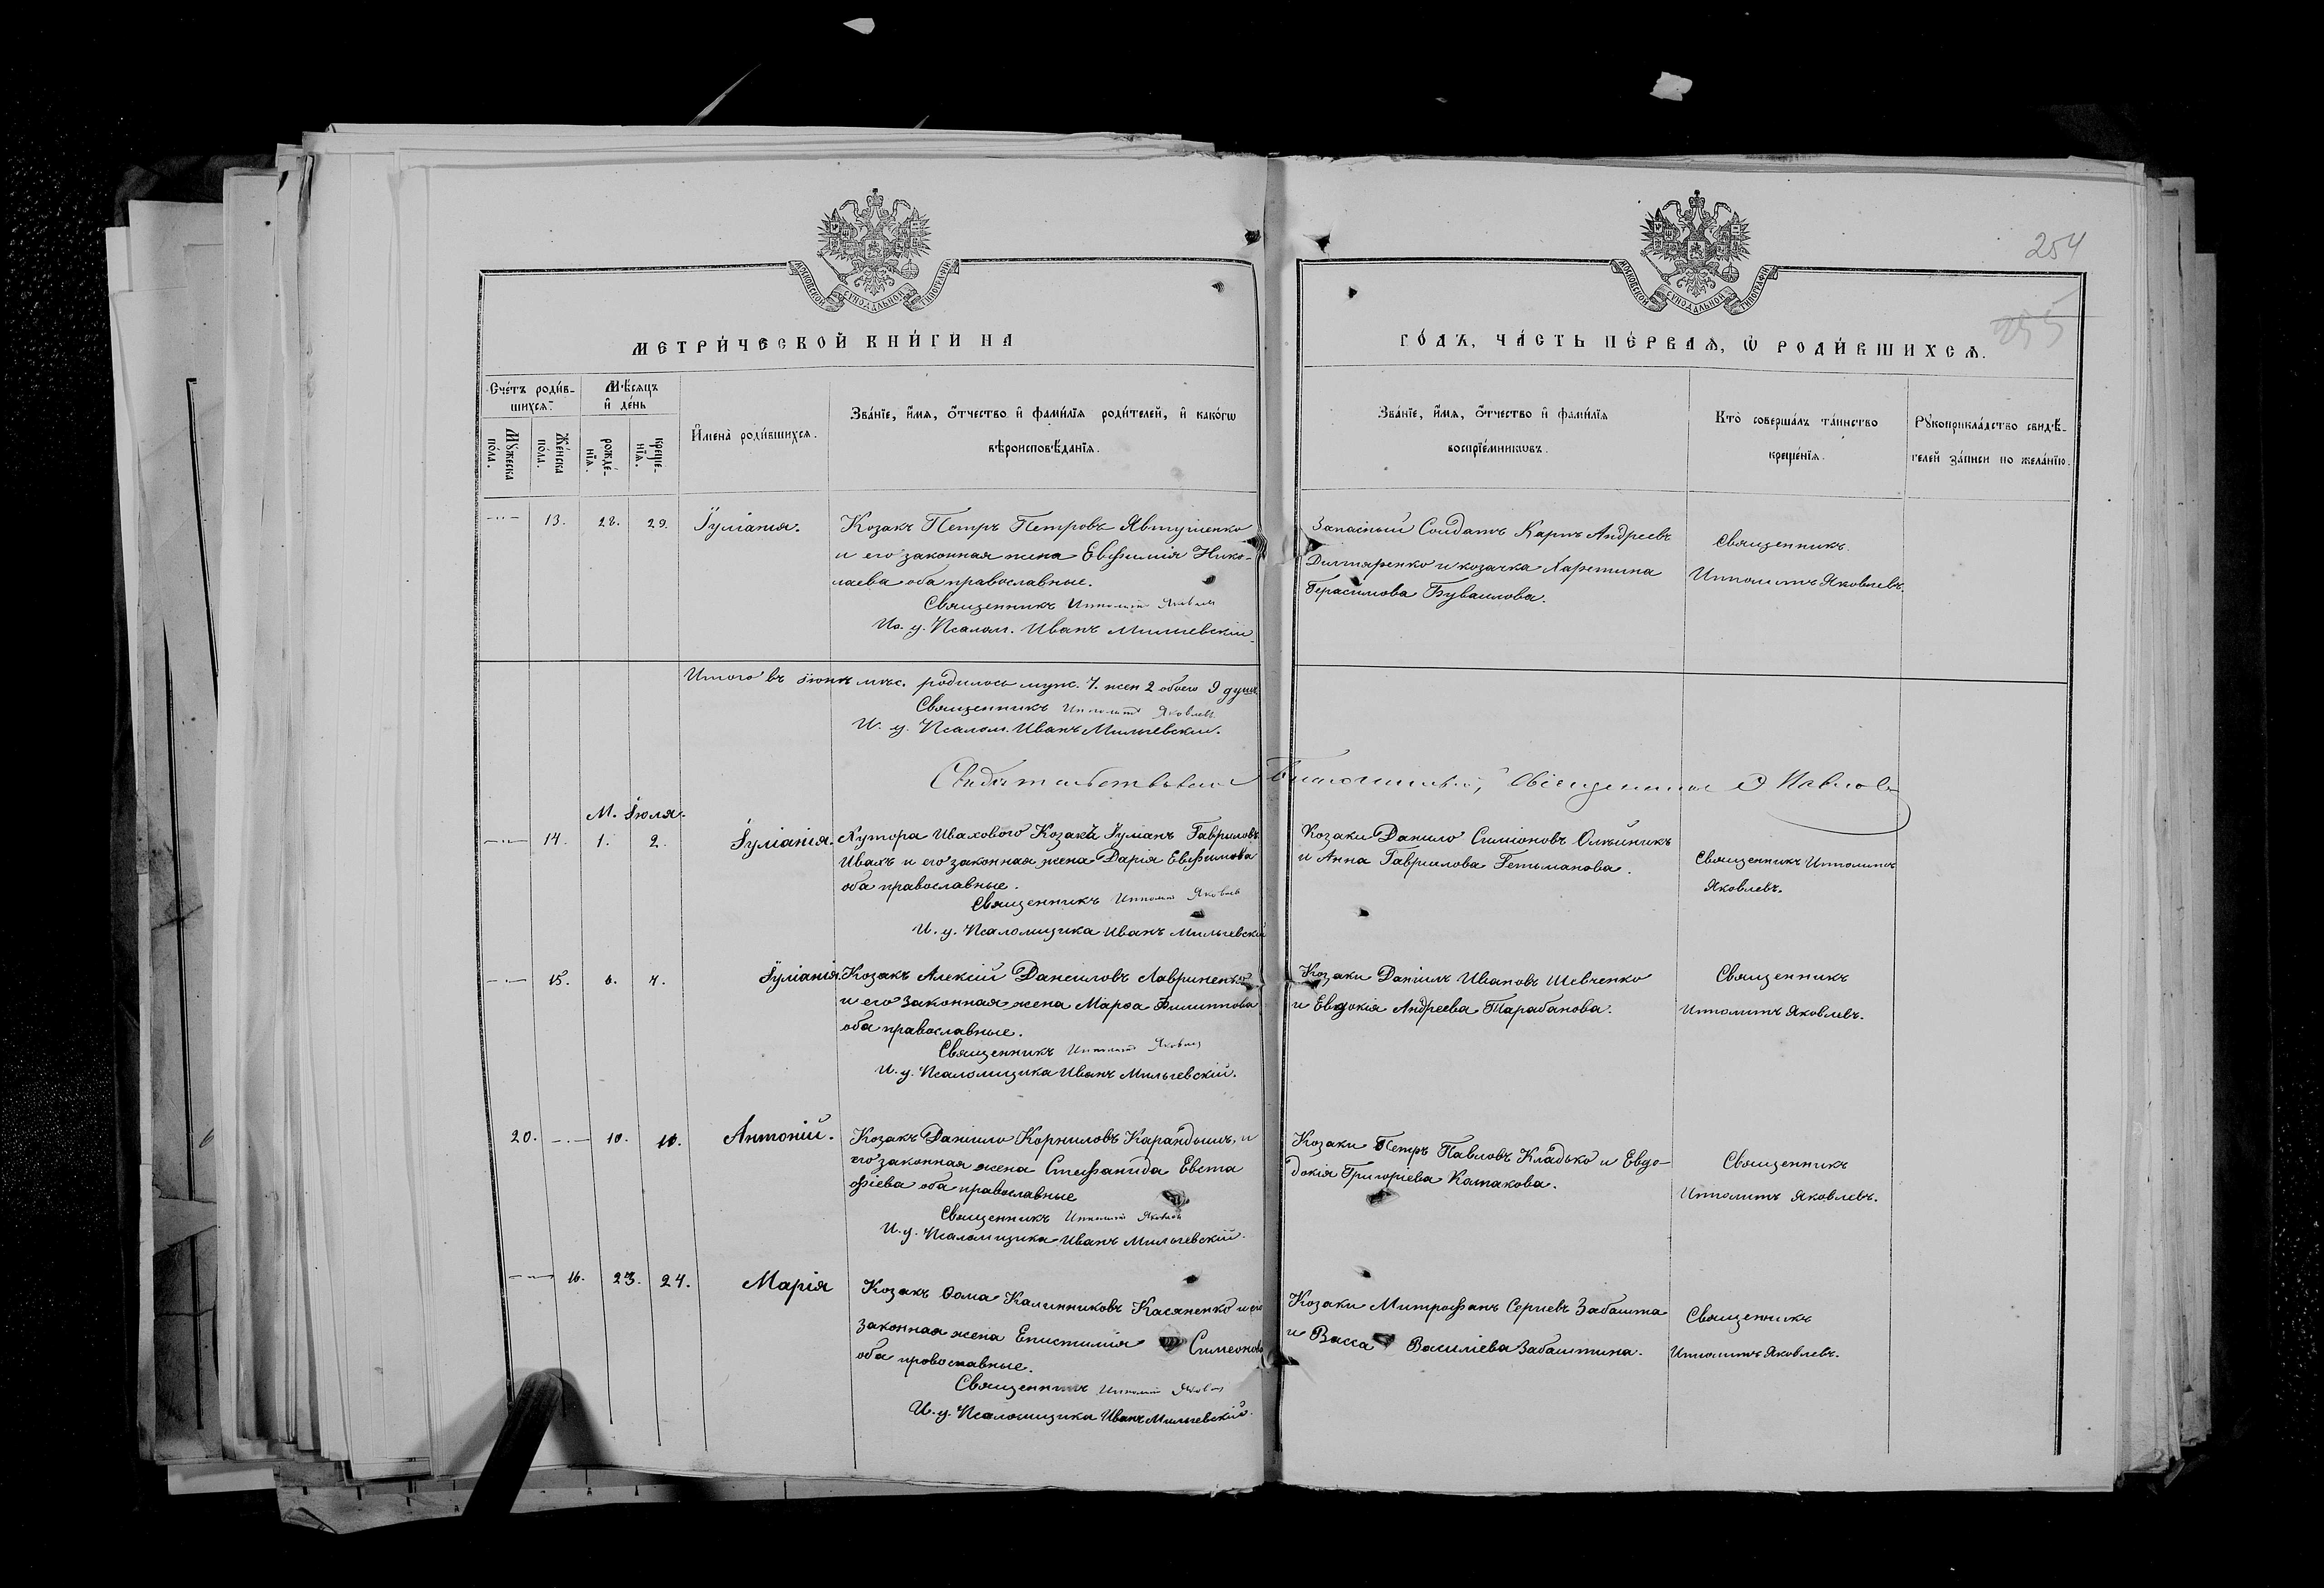 254
255
МОСКОВСКОЙ СѴНОДАЛЬНОЙ ТИПОГРАФІИ
МОСКОВСКОЙ СѴНОДАЛЬНОЙ ТИПОГРАФІИ
МЕТРИ́ЧЕСКОЙ КНИ́ГИ НА
ГО́ДЪ, ЧА́СТЬ ПЕ́РВАѦ, Ѡ РОДИ́ВШИХСѦ.
Сче́тъ роди́в-
шихсѧ:
Мꙋ́жеска по́ла.
Же́нска по́ла.
Мѣ́сѧцъ и де́нь
рожде́-нїѧ.
креще́-нїѧ.
И҆мена̀ роди́вшихсѧ.
Зва́нїе, и҆́мѧ, ѻ҆́тчество и҆ фами́лїѧ роди́телей, и҆ како́гѡ
вѣроисповѣ́данїѧ.
Зва́нїе, и҆́мѧ, ѻ҆́тчество и҆ фами́лїѧ
воспрїе́мникѡвъ.
Кто̀ соверша́лъ та́инство
креще́нїѧ.
Рꙋкоприкла́дство свидѣ́-
телей за́писи по жела́нїю.
13. 28. 29. Іуліанія.
Козакъ Петръ Петровъ Явтушенко
и его законная жена Евфимія Нико-
лаева оба православные.
Священникъ Ипполитъ Яковлевъ
Ис. у. Псалом. Иванъ Мильчевскій.
Запасный Солдатъ Карпъ Андреевъ
Дигтяренко и козачка Харитина
Герасимова Бувалова.
Священникъ
Ипполитъ Яковлевъ.
Итого въ Іюнѣ мѣс. родилось муж. 7. жен 2 обоего 9 душъ
Священникъ Ипполитъ Яковлевъ
И. у. Псалом. Иванъ Мильчевскій.
Свидѣтельствовалъ Благочинный, Священникъ Павловъ
М. Іюля.
14. 1. 2. Іуліанія.
Хутора Ивахового Козакъ Іуліанъ Гавриловъ
Ивахъ и его законная жена Дарія Евфимова
оба православные.
Священникъ Ипполитъ Яковлевъ
И. у. Псаломщика Иванъ Мильчевскій
Козаки Данило Симіоновъ Олѣйникъ
и Анна Гавриилова Гетьманова.
Священникъ Ипполитъ
Яковлевъ.
15. 3. 4. Іуліанія.
Козакъ Алексій Даниловъ Лавриненко
и его законная жена Марѳа Филиппова
оба православные.
Священникъ Ипполитъ Яковлевъ
И. у. Псаломщика Иванъ Мильчевскій.
Козаки Даніилъ Ивановъ Шевченко
и Евдокія Андреева Тарабанова.
Священникъ
Ипполитъ Яковлевъ.
20. 10. 10. Антоній.
Козакъ Даніило Корниловъ Карандышъ, и
его законная жена Стефанида Евста
фіева оба православные
Священникъ Ипполитъ Яковлевъ
И. у. Псаломщика Иванъ Мильчевскій.
Козаки Петръ Павловъ Кладько и Евдо-
докія Григоріева Колпакова.
Священникъ
Ипполитъ Яковлевъ.
16. 23. 24. Марія
Козакъ Ѳома Калинниковъ Касяненко и его
законная жена Епистимія Симеонова
оба провославные.
Священникъ Ипполитъ Яковлевъ
И. у. Псаломщика Иванъ Мильчевскій.
Козаки Митрофанъ Сергиевъ Забашта
и Васса Василіева Забаштина.
Священникъ
Ипполитъ Яковлевъ.